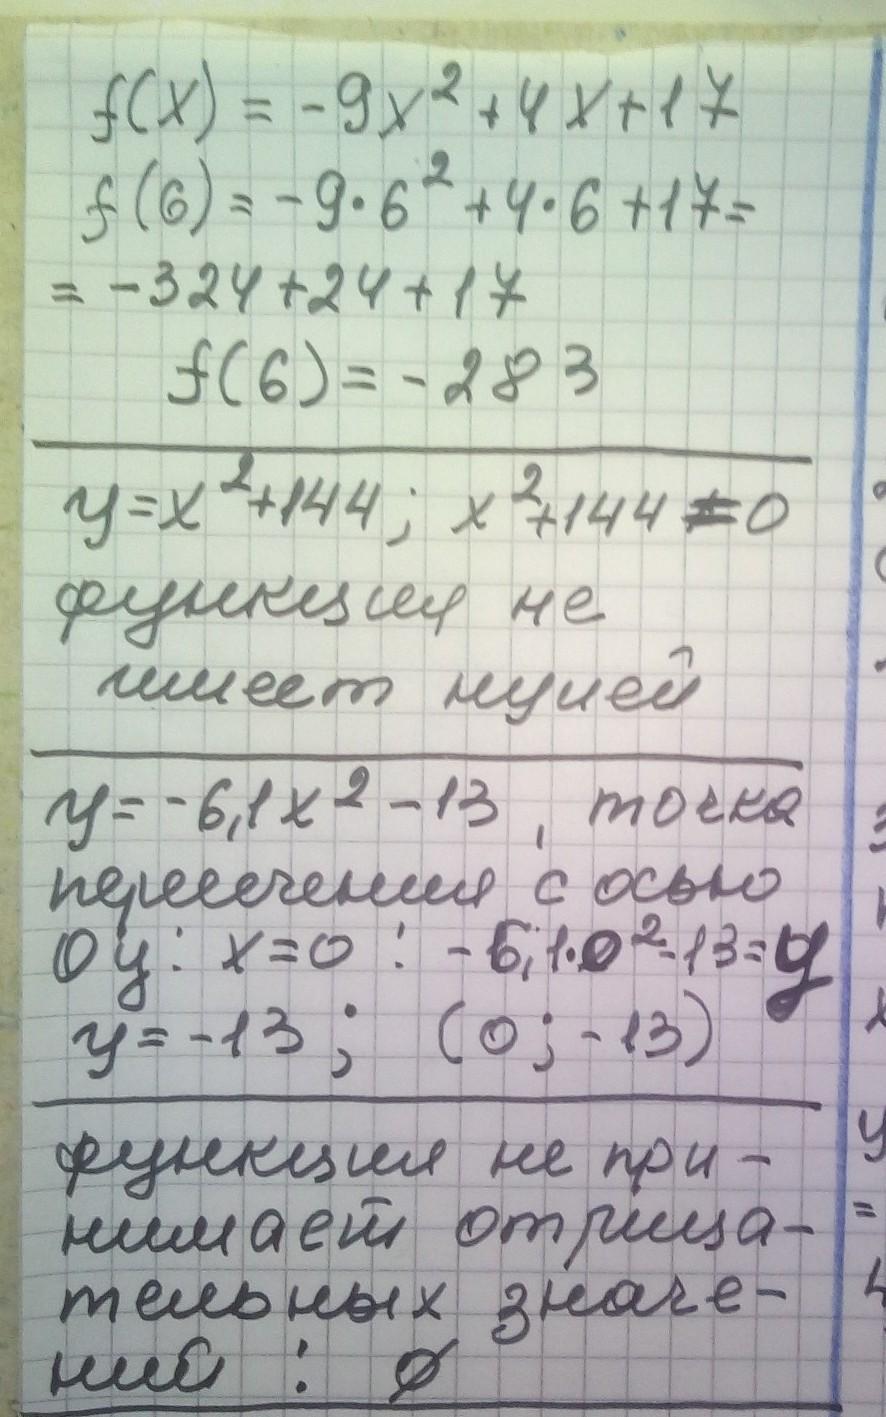 f(x) = -9x² + 4x + 17
f(6) = -9·6² + 4·6 + 17 =
= -324 + 24 + 17
f(6) = -283
y = x² + 144; x² + 144 ≠ 0
функция не
имеет нулей
y = -6,1x² - 13, точка
пересечения с осью
Oy: x = 0 : -6,1·0² - 13 = y
y = -13; (0; -13)
функция не при-
нимает отрица-
тельных значе-
ний : ∅